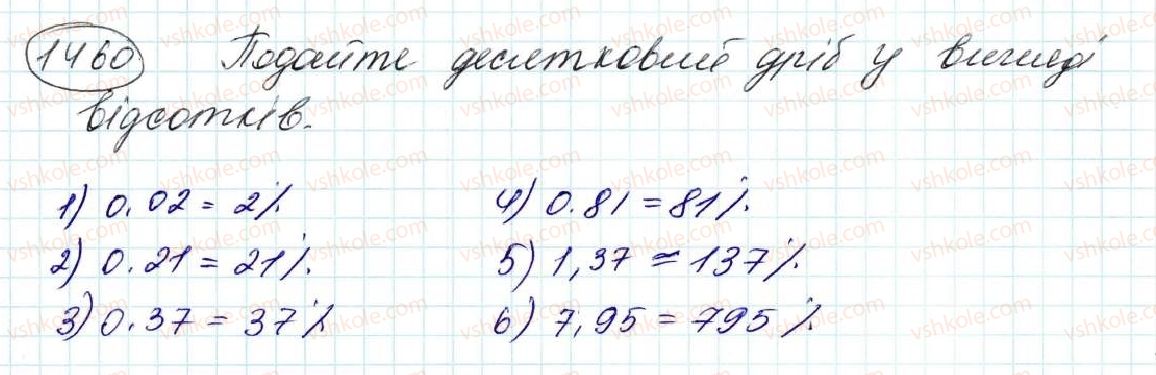 1460 Подайте десятковий дріб у вигляді
відсотків.
1) 0.02 = 2%
4) 0.81 = 81%.
2) 0.21 = 21%.
5) 1,37 = 137%.
3) 0.37 = 37%
6) 7,95 = 795%.